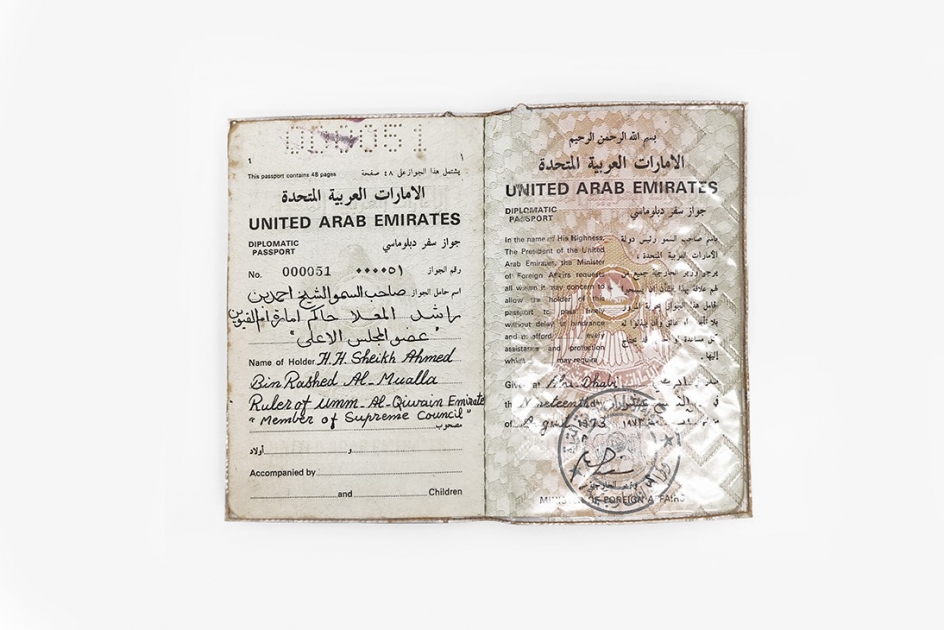 000051
1 ١
This passport contains 48 pages يشتمل هذا الجواز على ٤٨ صفحة
الامارات العربية المتحدة
UNITED ARAB EMIRATES
DIPLOMATIC PASSPORT جواز سفر دبلوماسي
No. 000051 ٠٠٠٠٥١ رقم الجواز
اسم حامل الجواز صاحب السمو الشيخ احمد بن
راشد المعلا حاكم امارة ام القيوين
"عضو المجلس الاعلى"
Name of Holder H.H. Sheikh Ahmed
Bin Rashed Al-Mualla
Ruler of Umm-Al-Qiwain Emirate
"Member of Supreme Council"
مصحوب
و اولاد
Accompanied by
and Children
بسم الله الرحمن الرحيم
الامارات العربية المتحدة
UNITED ARAB EMIRATES
DIPLOMATIC PASSPORT جواز سفر دبلوماسي
In the name of His Highness, باسم صاحب السمو رئيس دولة
The President of the United الامارات العربية المتحدة
Arab Emirates, the Minister
of Foreign Affairs requests
all whom it may concern to
allow the holder of this
passport to pass freely
without delay or hindrance
and to afford every
assistance and protection
which may require
Given at Abu-Dhabi
the Nineteenth
of 1973 ١٩٧٣
وزير الخارجية
MINISTER OF FOREIGN AFFAIRS